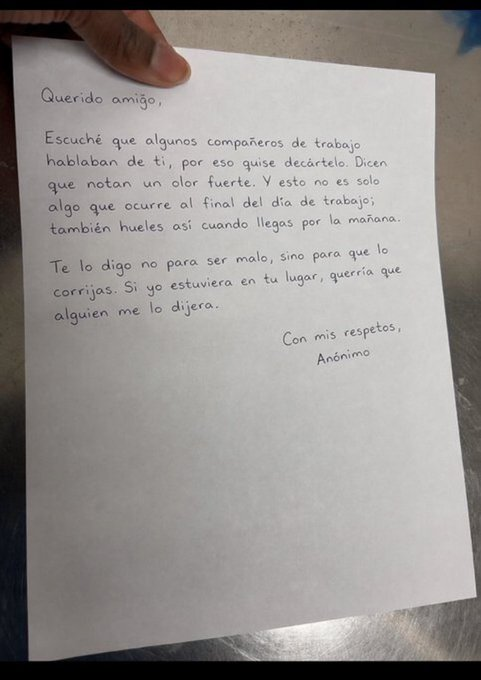 Querido amigo,
Escuché que algunos compañeros de trabajo
hablaban de ti, por eso quise decártelo. Dicen
que notan un olor fuerte. Y esto no es solo
algo que ocurre al final del día de trabajo;
también hueles así cuando llegas por la mañana.
Te lo digo no para ser malo, sino para que lo
corrijas. Si yo estuviera en tu lugar, querría que
alguien me lo dijera.
Con mis respetos,
Anónimo